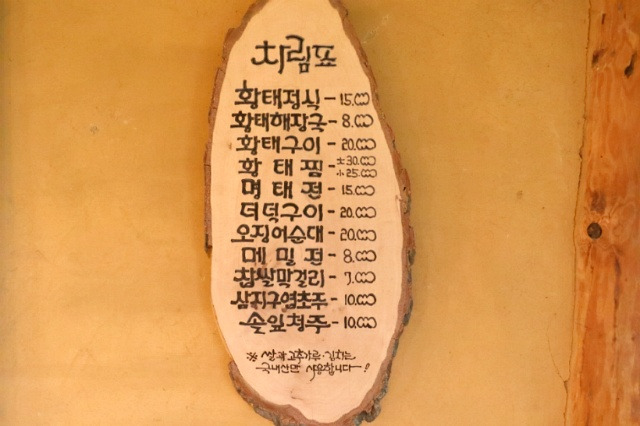 차림표
황태정식 - 15.000
황태해장국 - 8.000
황태구이 - 20.000
황태찜 - 大30.000 小25.000
명태전 - 15.000
더덕구이 - 20.000
오징어순대 - 20.000
메밀전 - 8.000
찹쌀막걸리 - 7.000
삼지구엽초주 - 10.000
솔잎청주 - 10.000
※ 쌀과 고추가루·김치는
국내산만 사용합니다 - !